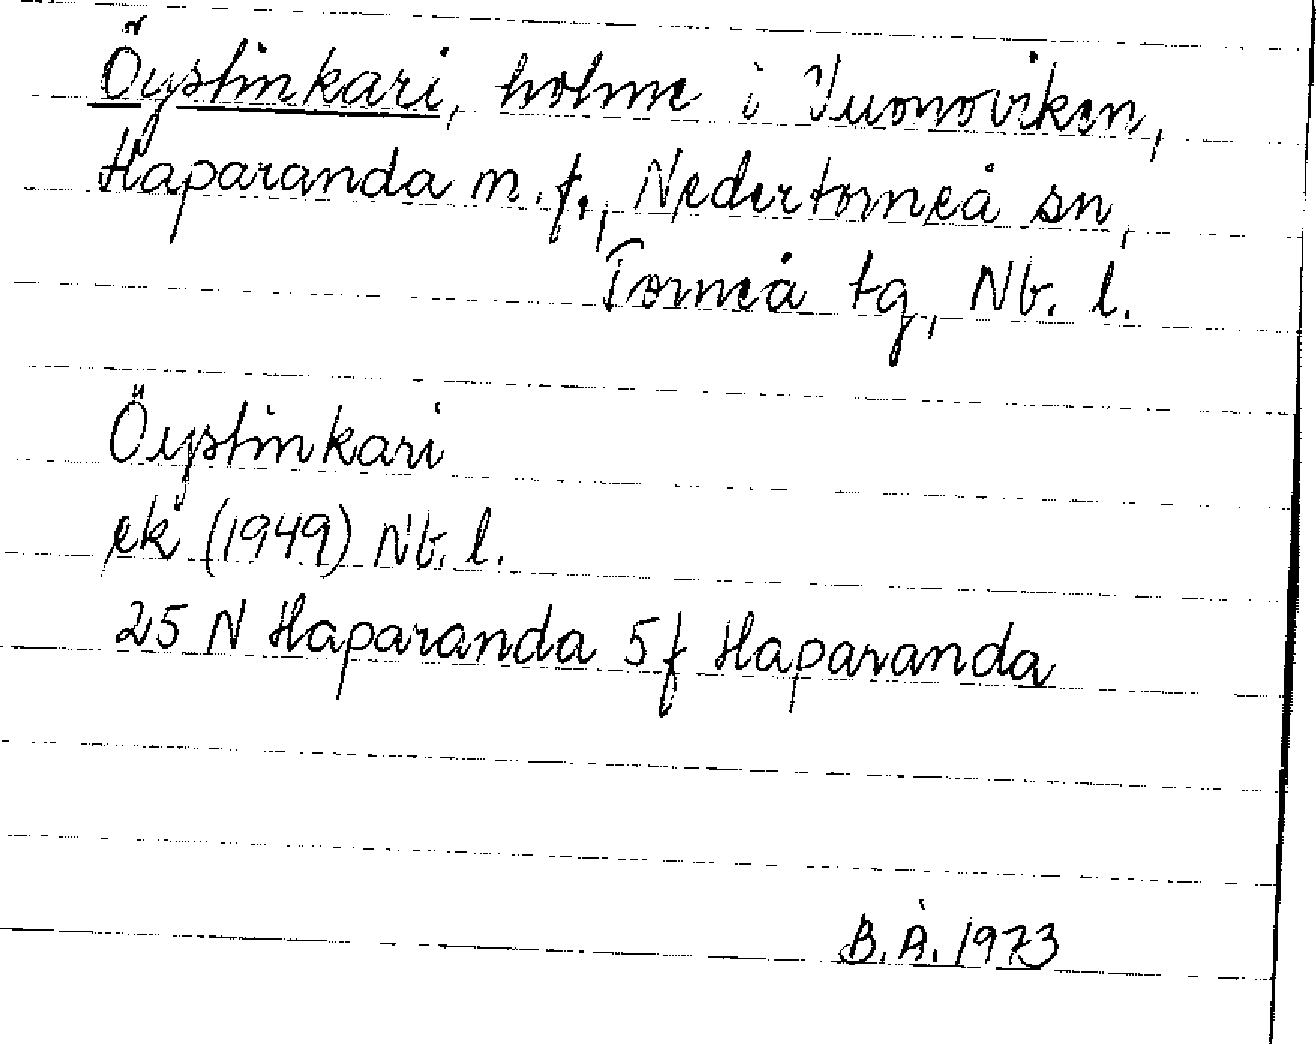 Öystinkari, holme i Vuonoviken,
Haparanda m.f., Nedertorneå sn,
Torneå tg, Nb. l.
Öystinkari
ek (1949) Nb. l.
25 N Haparanda 5f Haparanda
B.Å. 1973